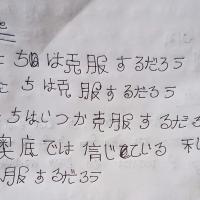 ちは克服するだろう
ちは克服するだろう
ちはいつか克服するだろ
奥底では信じている 私
服するだろう